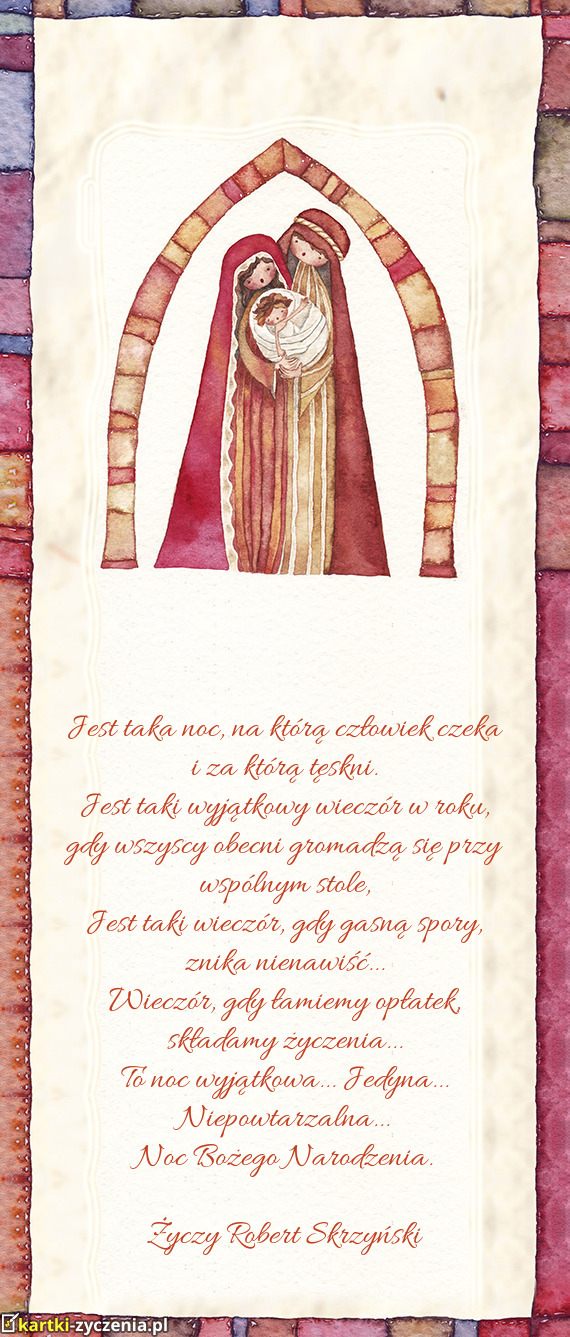 Jest taka noc, na którą człowiek czeka
i za którą tęskni.
Jest taki wyjątkowy wieczór w roku,
gdy wszyscy obecni gromadzą się przy
wspólnym stole,
Jest taki wieczór, gdy gasną spory,
znika nienawiść...
Wieczór, gdy łamiemy opłatek,
składamy życzenia...
To noc wyjątkowa... Jedyna...
Niepowtarzalna...
Noc Bożego Narodzenia.
Życzy Robert Skrzyński
kartki-zyczenia.pl